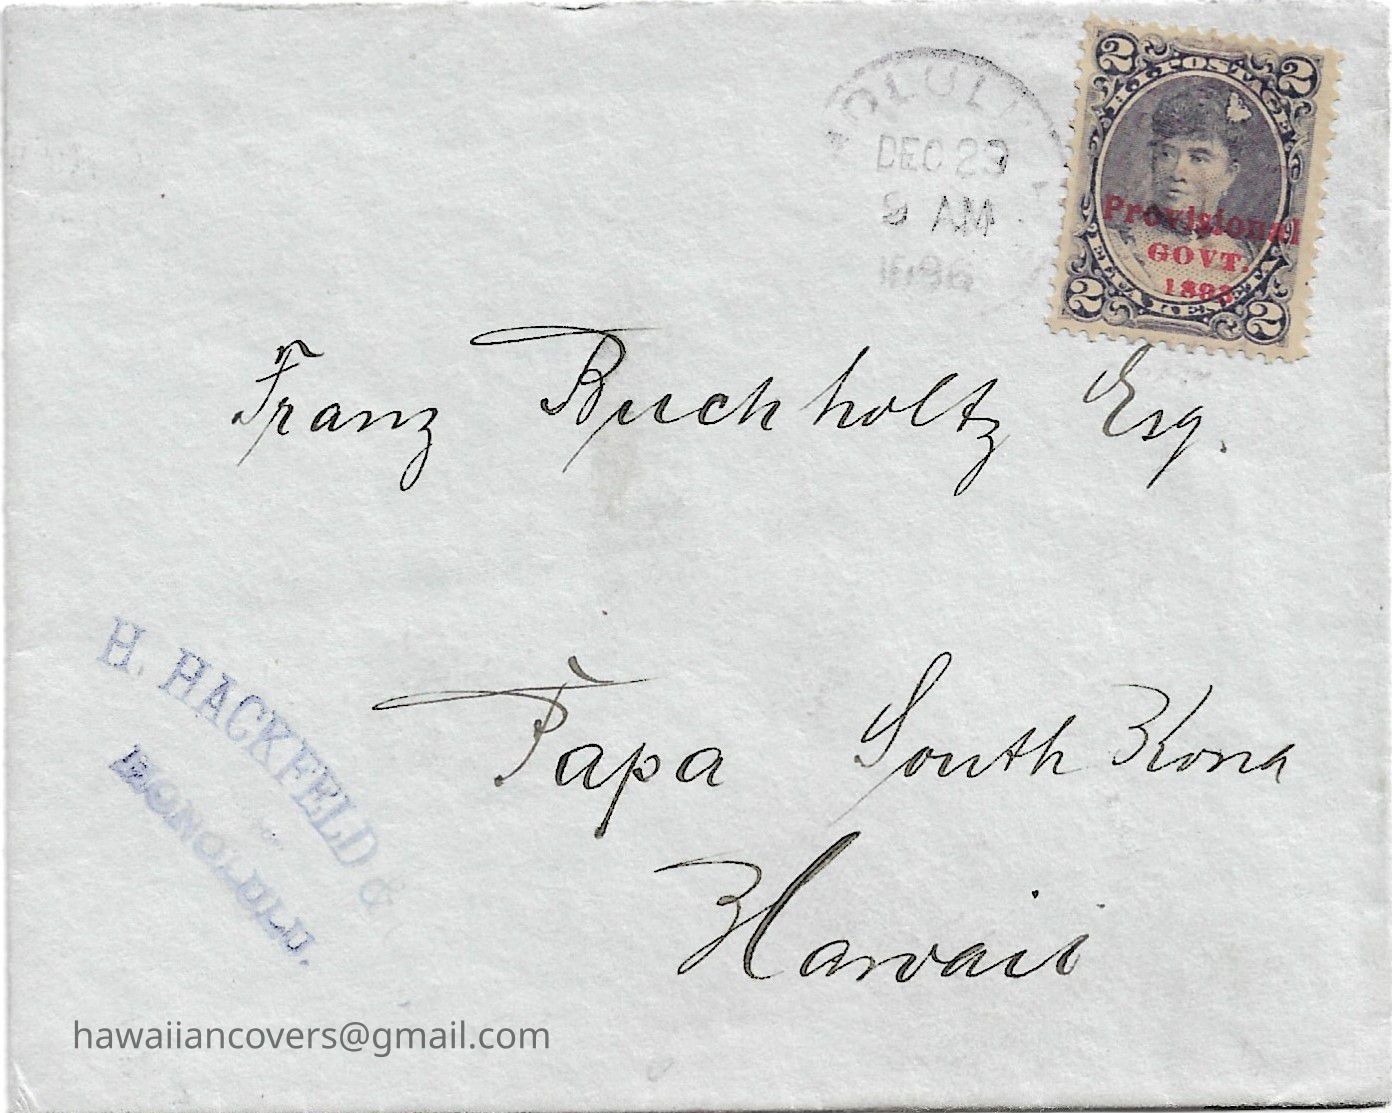 DEC 23
AM
2 2
Provisional
GOVT.
1893
2 2
Franz Buchholtz Esq.
H. HACKFELD &
HONOLULU.
Papa South Kona
Hawaii
hawaiiancovers@gmail.com